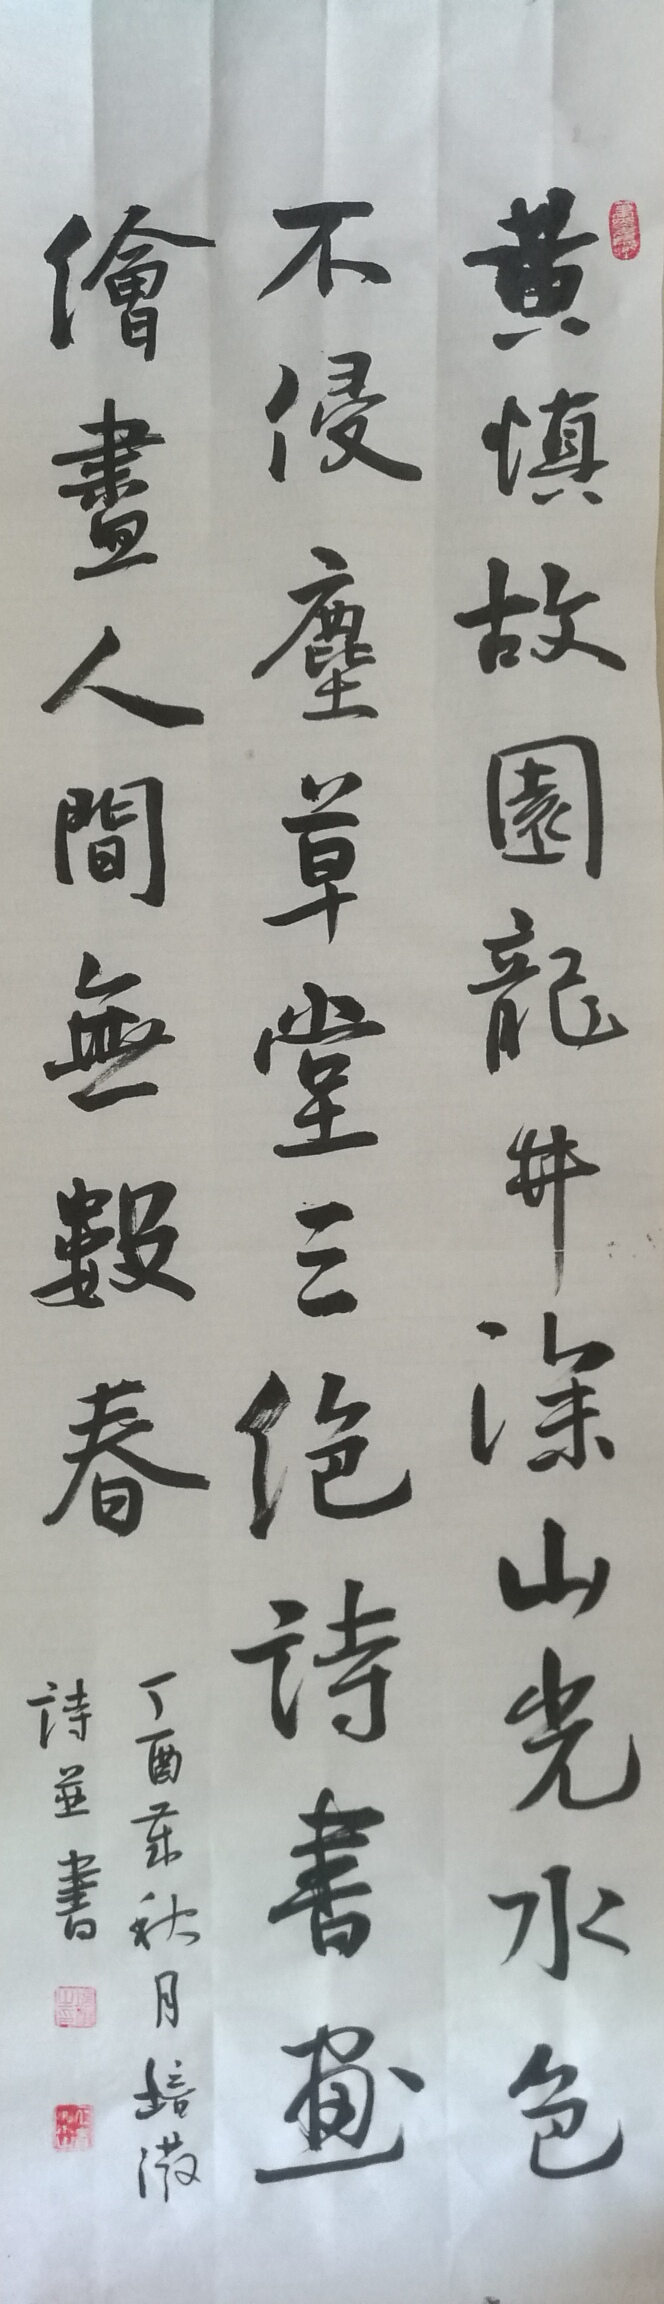 黃慎故園龍井深山光水色
不侵塵草堂三絕詩書畫
繪畫人間無數春
丁酉年秋月培
詩並書